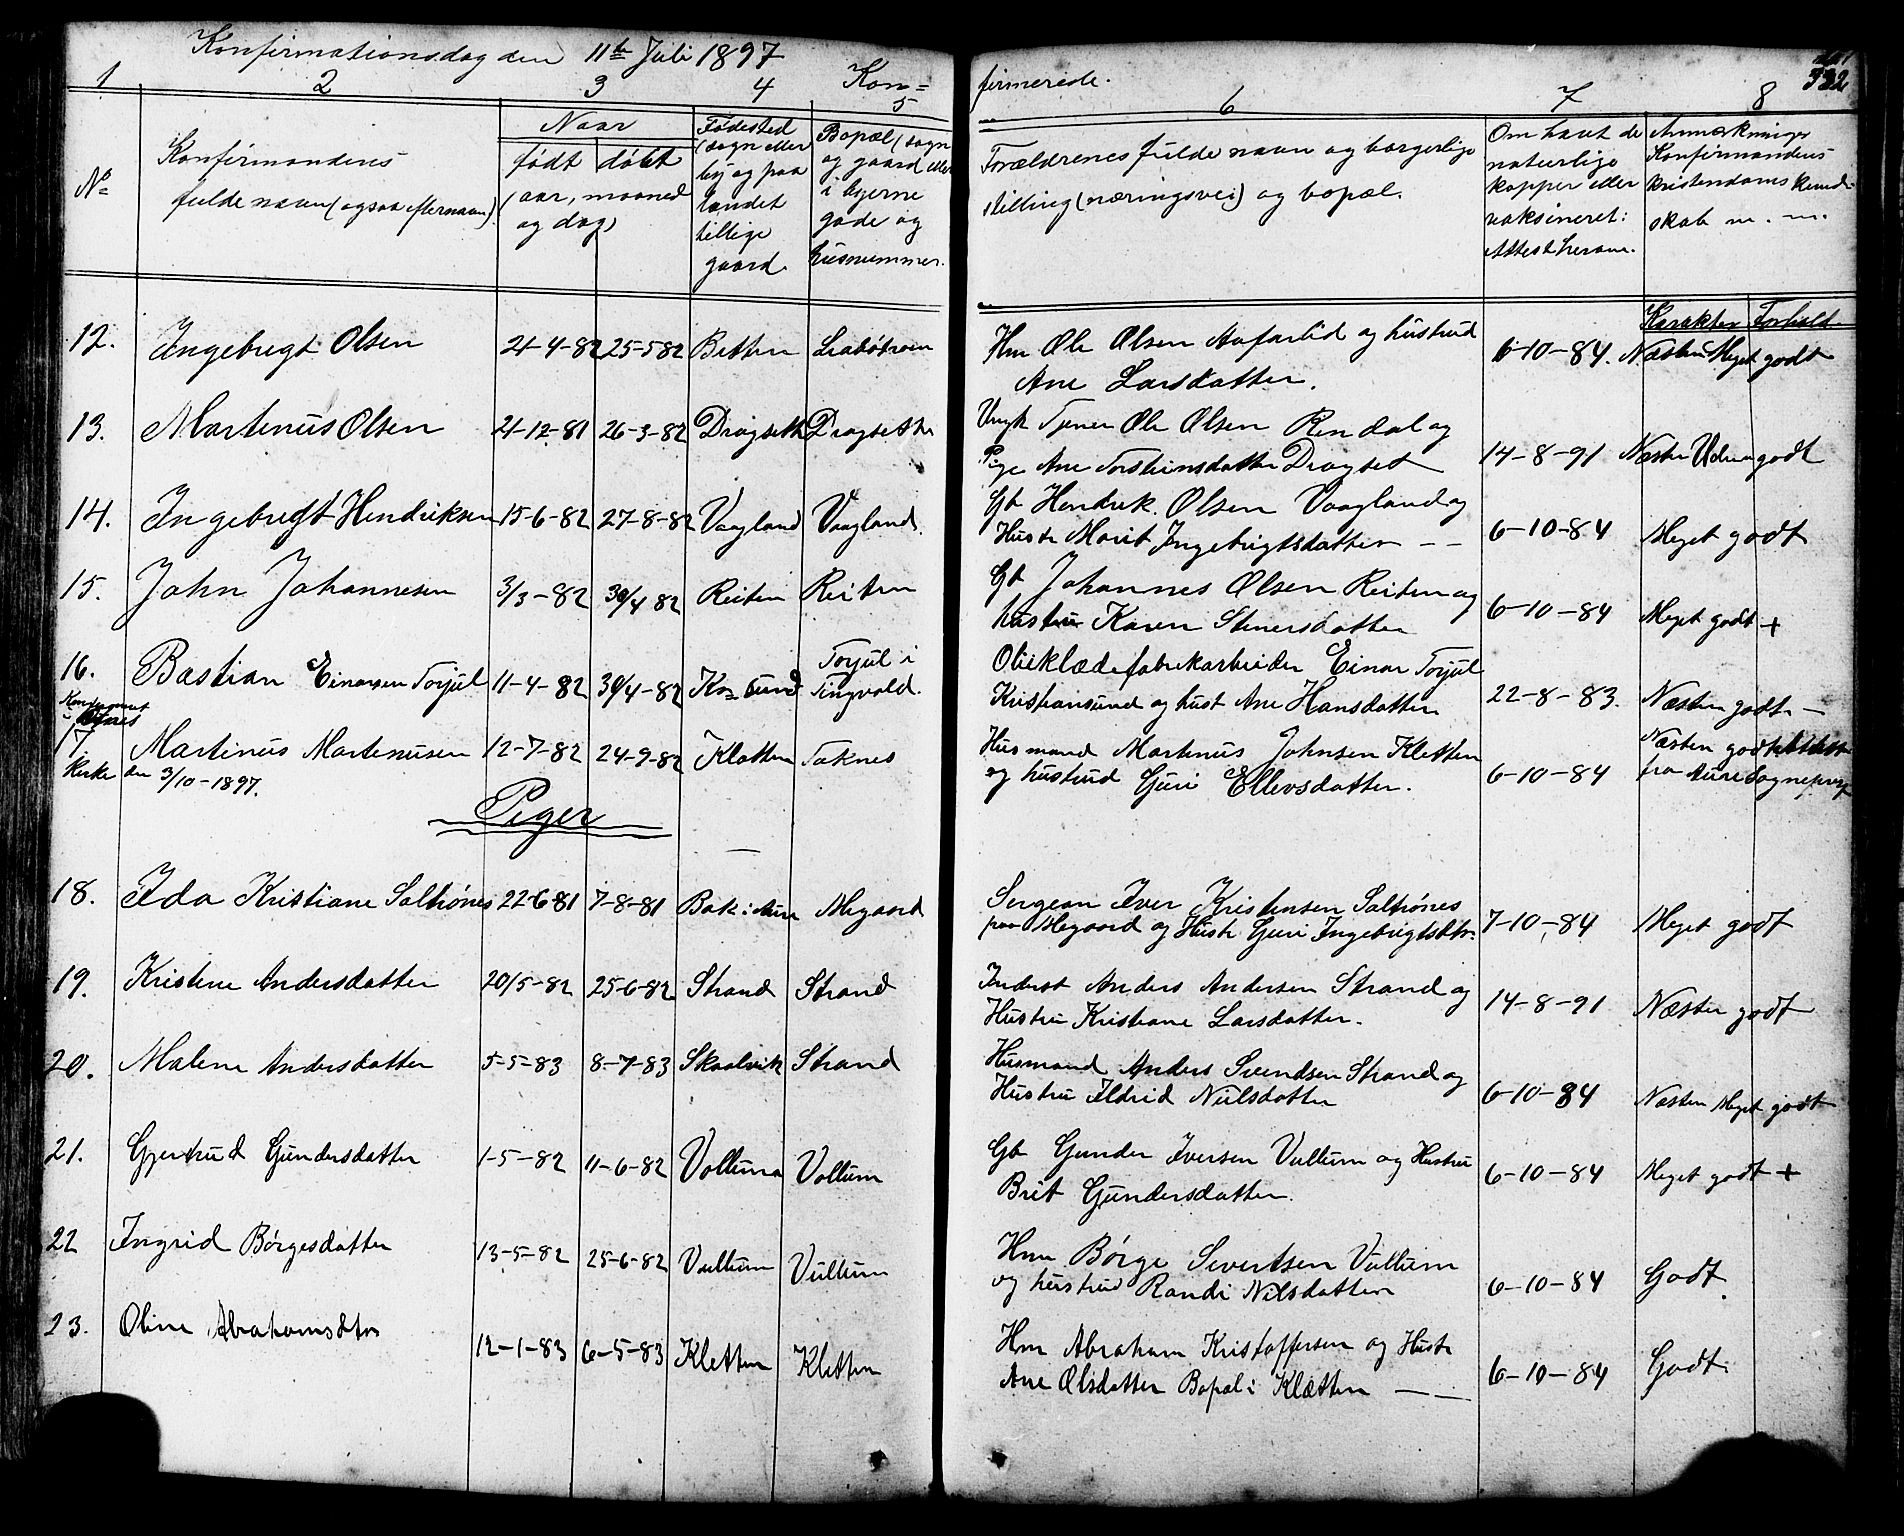 Konfirmationsdag den 11te Juli 1897
Kon=
firmerede.
322
1 2 3 4 5 6 7 8
No
Konfirmandens
fulde navn (ogsaa efternavn).
Naar
født døbt
(aar, maaned
og dag)
Fødested
(sogn eller
by og paa
landet
tillige
gaard.
Bopæl (sogn
og gaard eller
i byerne
gade og
husnummer.
Forældrenes fulde navn og borgerlige
stilling (næringsvei) og bopæl.
Om havt de
naturlige
kopper eller
vaksineret:
Attest herom.
Anmærkninger
Konfirmandens
kristendoms kund-
skab m. m.
Karakter Forhold
12. Ingebregt Olsen 21-4-82 25-5 82 Betten
Hm Ole Olsen og hustrud
Ane Larsdatter.
6-10-84. Næsten Meget godt
13. Martinus Olsen 21-12-81 26-3-82 Dragseth Dragseth
Ungk Tjener Ole Olsen Rendal og
Pige Ane Torsteinsdatter Dragset
14-8-91 Næsten godt
14. Ingebregt Hendriksen 15-6-82 27-8-82 Vaagland Vaagland.
Gb Hendrik Olsen Vaagland og
Hustr Marit Ingebrigtsdatter — —
6-10-84 Meget godt
15. John Johannesen 3/3-82 30/4 82 Reiten Reiten
Gb Johannes Olsen Reiten og
hustru Karen Stenersdatter
6-10-84 Meget godt +
16. Bastian Einarsen Torjul 11-4-82 30/4-82 Kr. sund Torjul i
Tingvold.
Olieklædefabrikarbeider Einar Torjul
Kristiansund og hust Ane Hansdatter
22-8-83. Næsten godt —
17 Martinus Martenusen 12-7-82 24-9-82 Kletten Taknes
Kirke den 3/10-1897.
Husmand Martenus Johnsen Kletten
og hustrud Guri Ellevsdatter.
6-10-84 Næsten godt
fra Aure Sognepr
Piger
18. Ida Kristiane Saltrønes 22-6-81 7-8-81 Bak i Aure Megaard
Sergean Iver Kristensen Saltrønes
paa Megaard og Hustr Guri Ingebrigtsdtr.
7-10-84 Meget godt
19. Kristine Andersdatter 20/5-82 25-6-82 Strand Strand
Inderst Anders Andersen Strand og
Hustru Kristiane Larsdatter.
14-8-91 Næsten godt
20. Malene Andersdatter 5-5-83 8-7-83 Skaalvik Strand
Husmand Anders Svendsen Strand og
Hustru Ildrid Nilsdatter
6-10-84 Næsten Meget godt
21. Gjertrud Gundersdatter 1-5-82 11-6-82 Vullum Vollum
Gb Gunder Iversen Vullum og Hustru
Brit Gundersdatter.
6-10-84 Meget godt +
22 Ingrid Børgesdatter 13-5-82 25-6-82 Vullum Vullum
Hm Børge Sivertsen Vullum
og hustrud Randi Nilsdatter
6-10-84 Godt
23. Oline Abrahamsdtr 12-1-83 6-5-83 Kletten Kletten
Hm Abraham Kristoffersen og Hustr
Ane Olsdatter Bopæl i Klætten — —
6-10-84 Godt